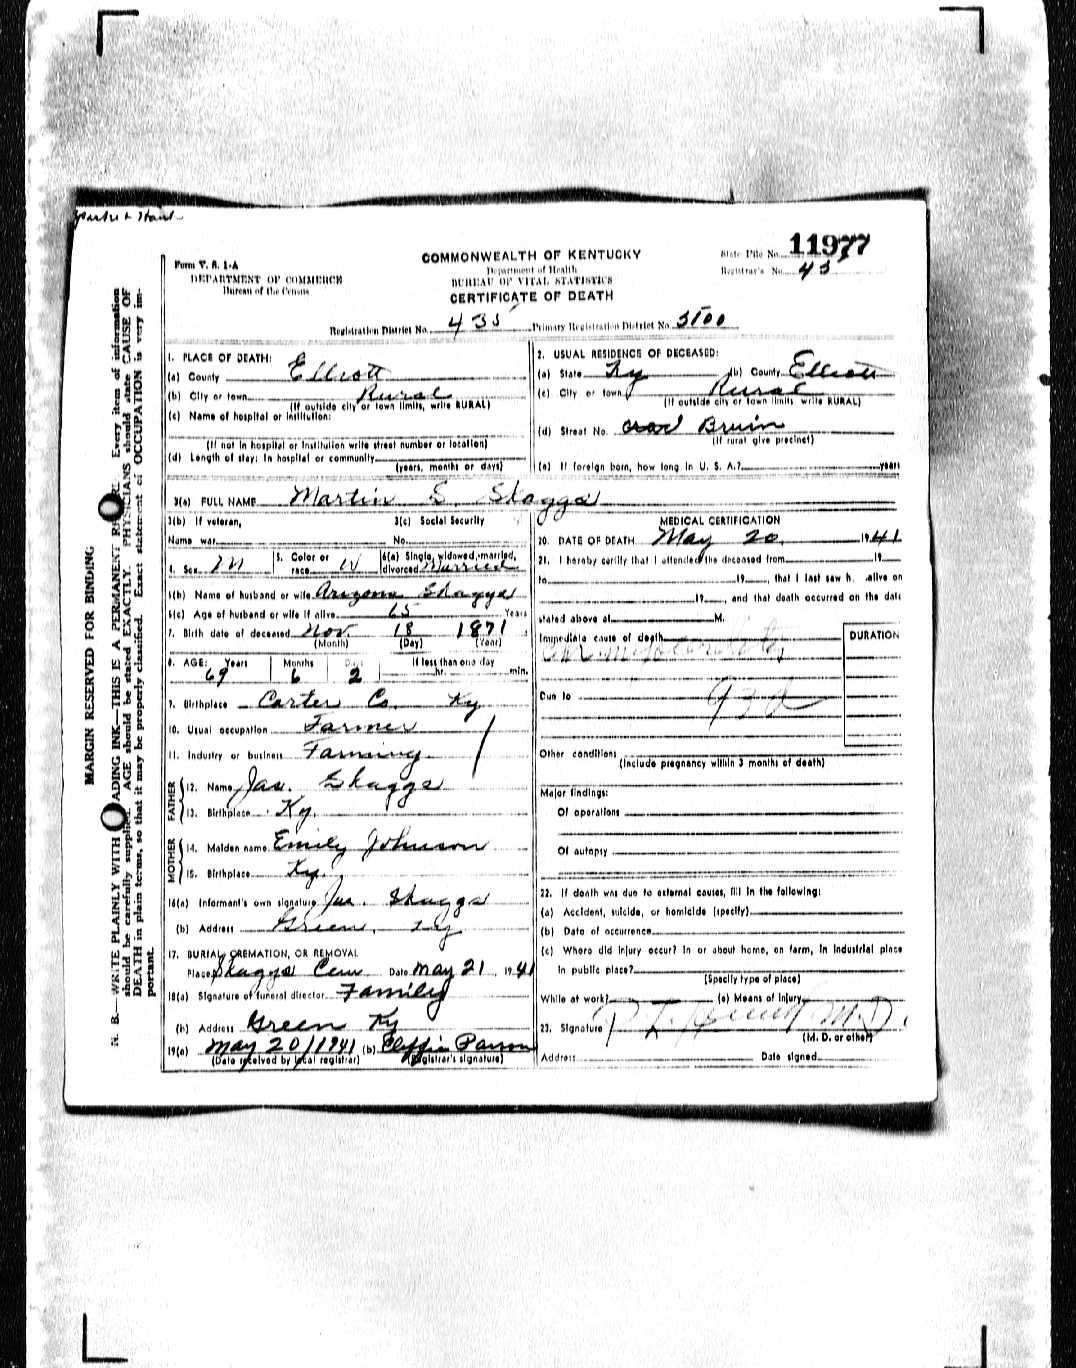 11977
Form V. S. 1-A
COMMONWEALTH OF KENTUCKY
State File No.
DEPARTMENT OF COMMERCE
Department of Health
Registrar's No. 43
Bureau of the Census
BUREAU OF VITAL STATISTICS
CERTIFICATE OF DEATH
Registration District No. 435 Primary Registration District No. 5100
1. PLACE OF DEATH:
(a) County Elliott
(b) City or town Rural
(If outside city or town limits, write RURAL)
(c) Name of hospital or institution:
(If not in hospital or institution write street number or location)
(d) Length of stay: In hospital or community
(years, months or days)
2. USUAL RESIDENCE OF DECEASED:
(a) State Ky (b) County Elliott
(c) City or town Rural
(If outside city or town limits write RURAL)
(d) Street No. Bruin
(If rural give precinct)
(e) If foreign born, how long in U. S. A.? years
3(a) FULL NAME Martin S. Skaggs
3(b) If veteran,
3(c) Social Security
Name war
No.
4. Sex M
5. Color or race W
6(a) Single, widowed, married, divorced Married
6(b) Name of husband or wife Arizona Skaggs
6(c) Age of husband or wife if alive 65 Years
7. Birth date of deceased Nov. 18 1871
(Month) (Day) (Year)
8. AGE: Years Months Days If less than one day
69 6 2 hr. min.
9. Birthplace Carter Co. Ky
10. Usual occupation Farmer
11. Industry or business Farming
FATHER
12. Name Jas. Skaggs
13. Birthplace Ky.
MOTHER
14. Maiden name Emily Johnson
15. Birthplace Ky.
16(a) Informant's own signature Jas. Skaggs
(b) Address Green, Ky
17. BURIAL, CREMATION, OR REMOVAL
Place Skaggs Cem Date May 21, 1941
18(a) Signature of funeral director Family
(b) Address Green Ky
19(a) May 20/1941 (b)
(Date received by local registrar) (Registrar's signature)
MEDICAL CERTIFICATION
20. DATE OF DEATH May 20, 1941
21. I hereby certify that I attended the deceased from 19
to 19, that I last saw h alive on
19, and that death occurred on the date
stated above at M.
Immediate cause of death
DURATION
Due to 93d
Other conditions
(Include pregnancy within 3 months of death)
Major findings:
Of operations
Of autopsy
22. If death was due to external causes, fill in the following:
(a) Accident, suicide, or homicide (specify)
(b) Date of occurrence
(c) Where did injury occur? In or about home, on farm, in industrial place
in public place?
(Specify type of place)
While at work? (e) Means of injury
23. Signature M.D.
(M. D. or other)
Address Date signed
MARGIN RESERVED FOR BINDING
N. B.—WRITE PLAINLY WITH UNFADING INK—THIS IS A PERMANENT RECORD. Every item of information
should be carefully supplied. AGE should be stated EXACTLY. PHYSICIANS should state CAUSE OF
DEATH in plain terms, so that it may be properly classified. Exact statement of OCCUPATION is very im-
portant.